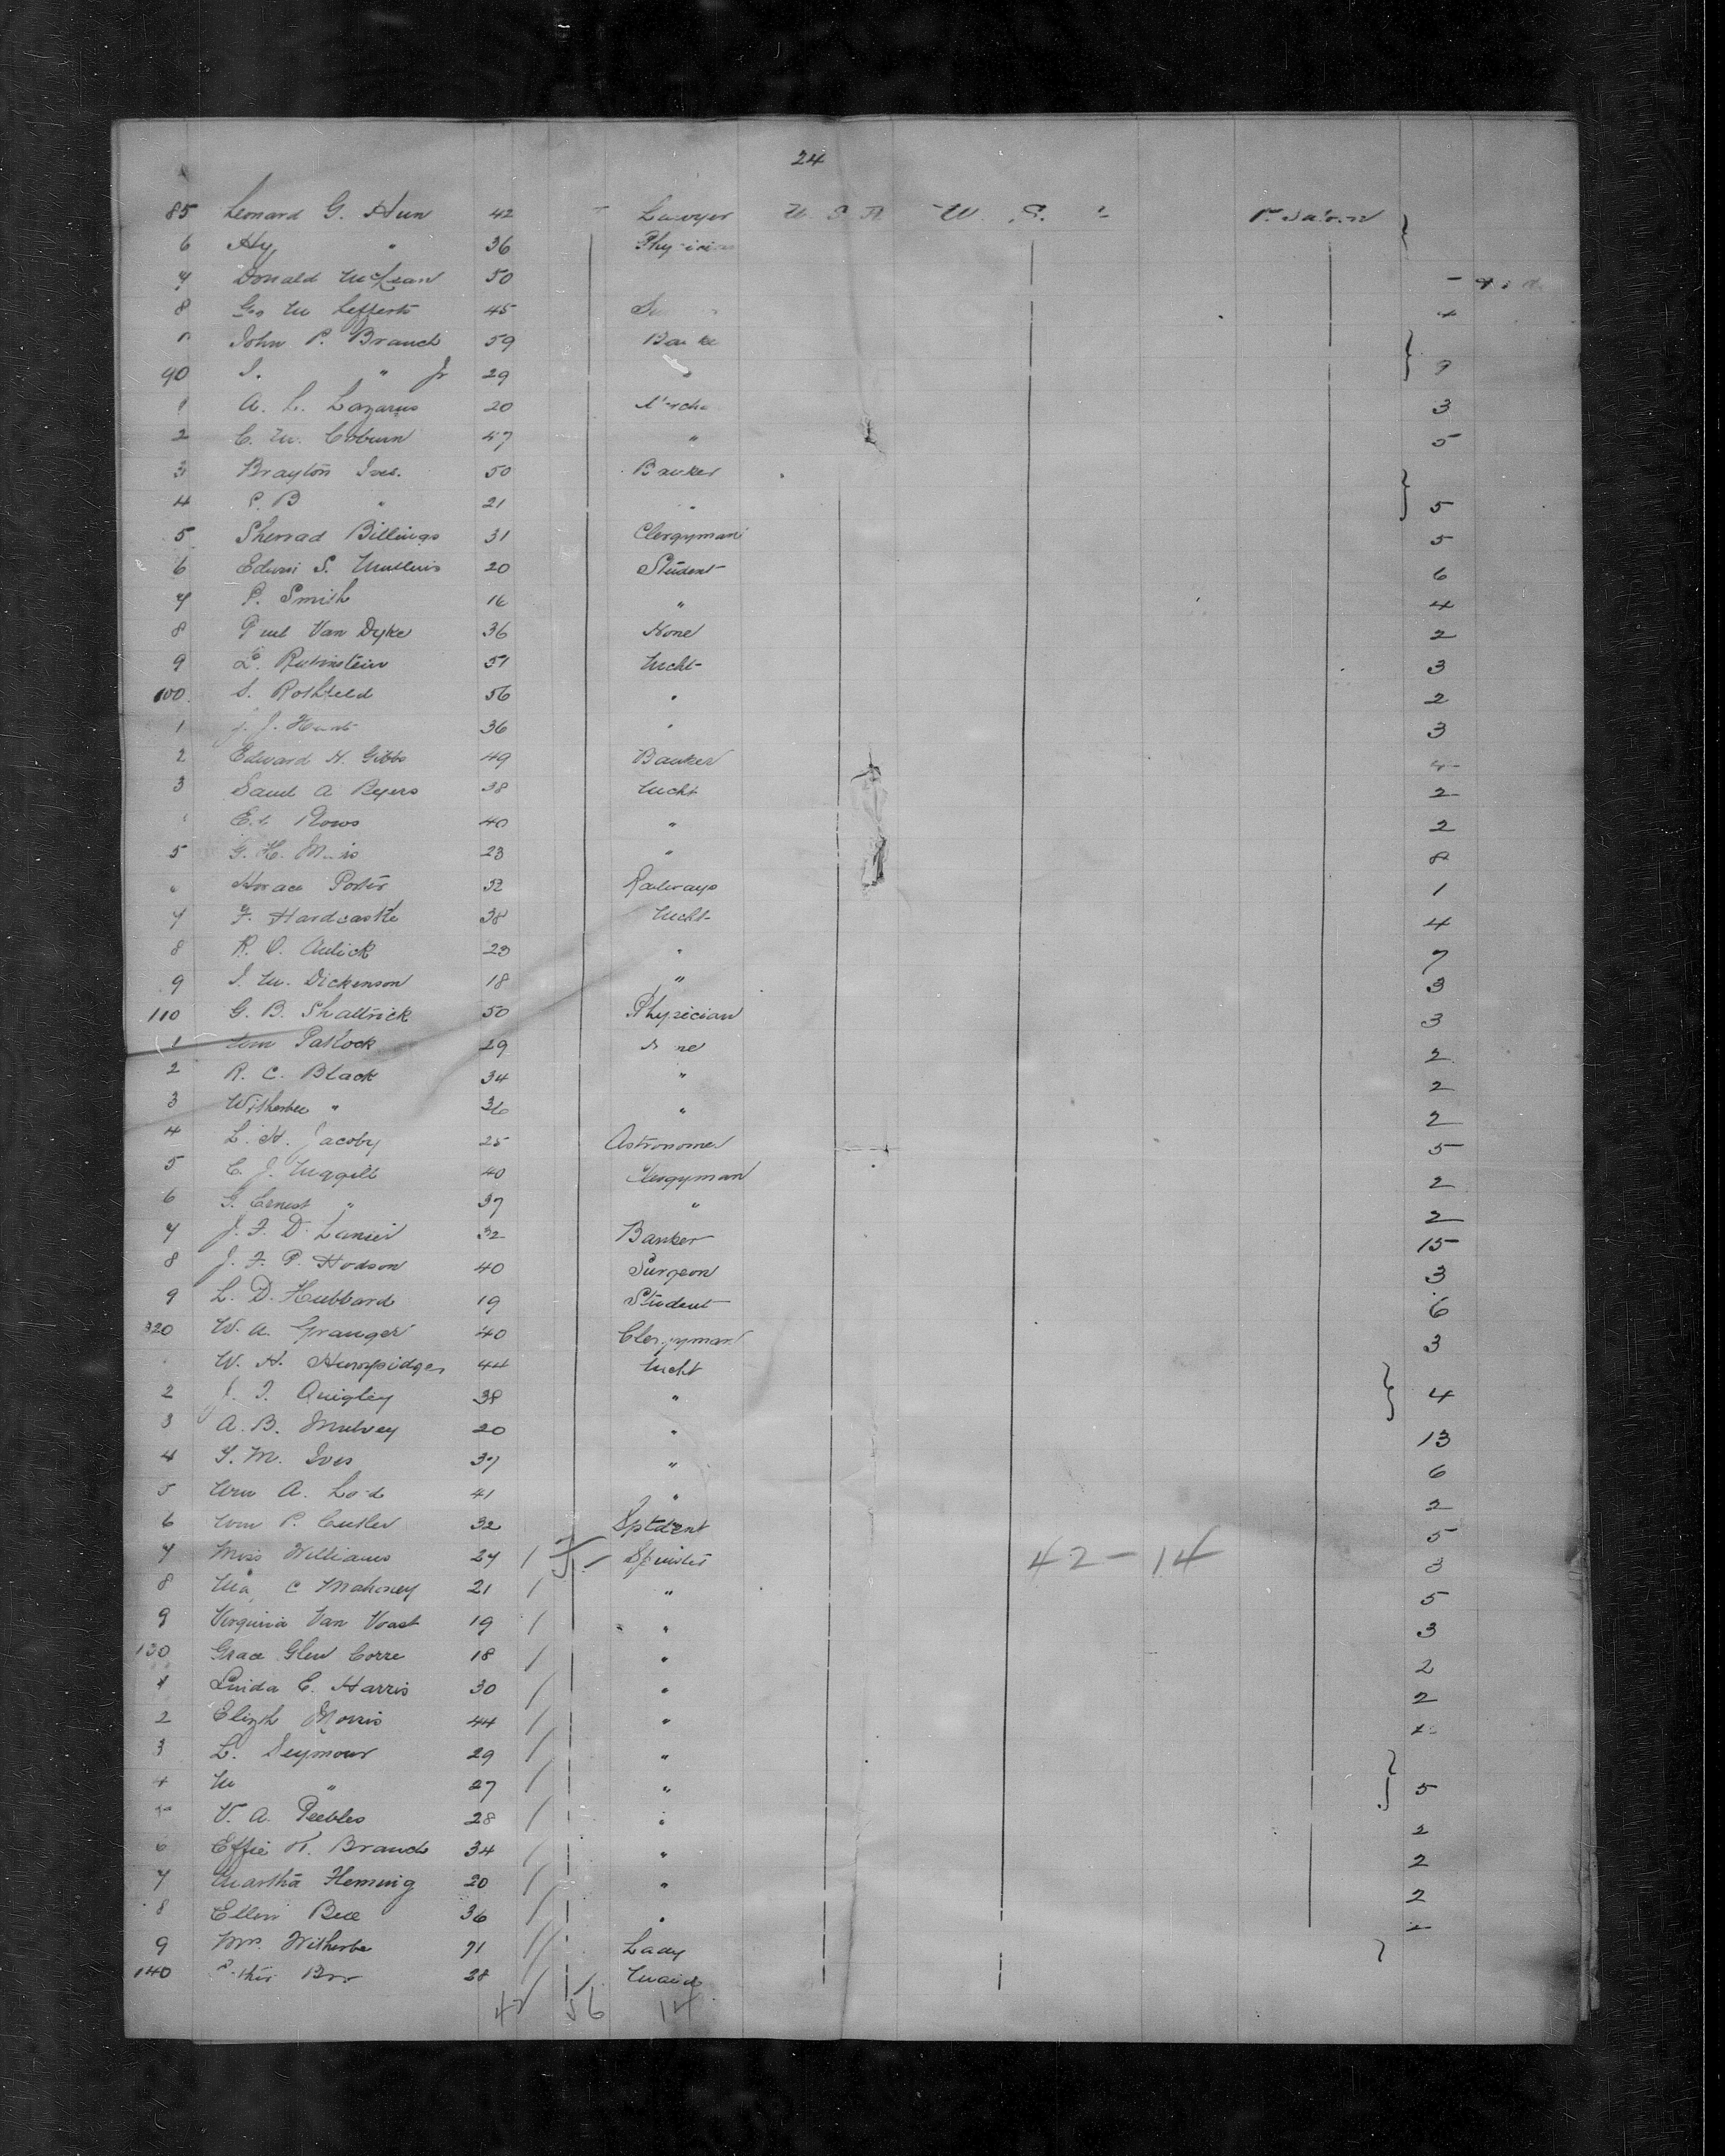 24
85 Leonard G. Hun 42 Lawyer U. S. A W. S.
6 Hy " 36 Physician
7 Donald McLean 50
8 Geo W Lefferts 45
John P. Branch 59 Banke
90 J. " Jr 29 " 9
A. L. Lazarus 20 3
2 C. W. Coburn 47 " 5
3 Brayton Ives. 50 Banker
4 P. B " 21 " 5
5 Sherrad Billings 31 Clergyman 5
6 Edwin S. Mullins 20 Student 6
7 P. Smith 16 " 4
8 Paul Van Dyke 36 None 2
9 L. Rubinstein 51 Mcht 3
100 S. Rothfeld 56 " 2
1 J. Hunt 36 " 3
2 Edward H. Gibbs 49 Banker 4
3 Saml A Byers 38 Mcht 2
40 " 2
5 G. H. 23 " 8
Horace Porter 52 Railways 1
7 F. Hardcastle 38 Mcht 4
8 R. O. Aulick 23 " 7
9 J. W. Dickenson 18 " 3
110 G. B. Shattrick 50 Physician 3
1 Wm Patlock 29 2
2 R. C. Black 34 " 2
3 Witherbee " 36 " 2
4 L. H. Jacoby 25 Astronomer 5
5 C. J. Wiggill 40 Clergyman 2
6 G. Ernest " 37 " 2
7 J. F. D. Lanier 32 Banker 15
8 J. F. P. Hodson 40 Surgeon 3
9 L. D. Hubbard 19 Student 6
320 W. A. Granger 40 Clergyman 3
W. H. 44 Mcht
2 J. T. Quigley 38 " 4
3 A. B. Mulvey 20 " 13
4 Y. M. Ives 37 " 6
5 Wm A. 41 " 2
6 Wm P. Cutler 32 Sptdent 5
7 Miss Williams 27 / Spinster 42-14 3
8 C Mahoney 21 / " 5
9 Virginia Van Voast 19 / " 3
130 Grace Glen Corre 18 / " 2
1 Linda C. Harris 30 / " 2
2 Elizth Morris 44 / "
3 L. Seymour 29 / "
4 M " 27 / " 5
V. A. Peebles 28 / " 2
6 Effie K. Branch 34 / " 2
7 Martha Fleming 20 / " 2
8 Ellen Bell 36 / "
9 Mrs. Witherbe 71 / Lady
140 28 / Maid
42 56 14